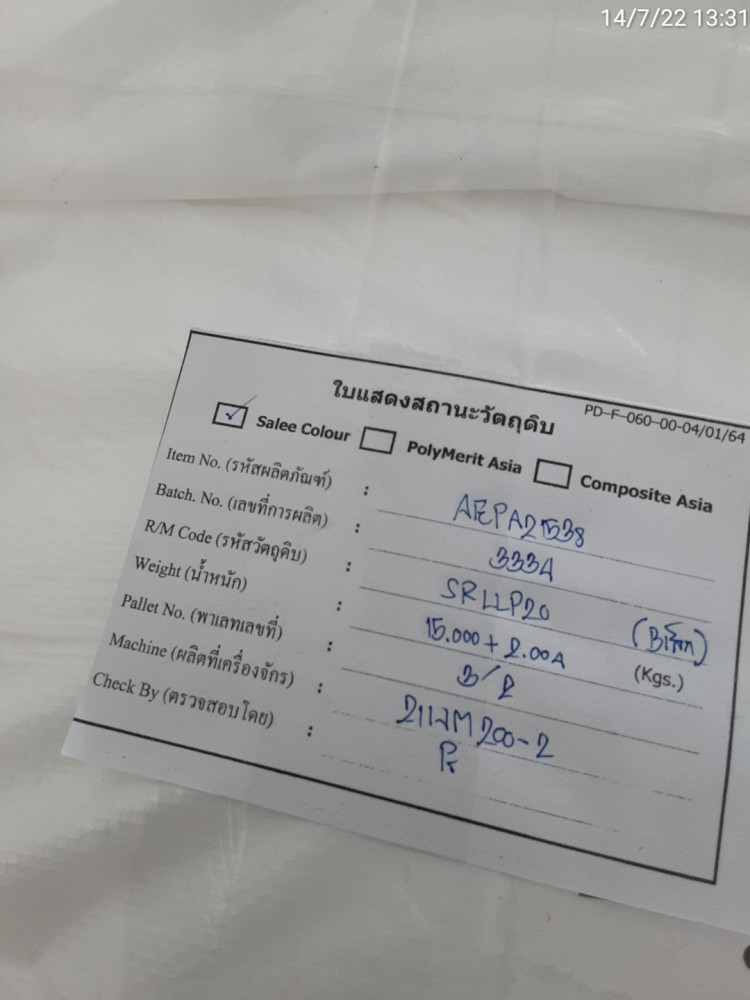 14/7/22 13:31
ใบแสดงสถานะวัตถุดิบ
PD-F-060-00-04/01/64
Salee Colour PolyMerit Asia Composite Asia
Item No. (รหัสผลิตภัณฑ์) : AEPA21538
Batch. No. (เลขที่การผลิต) : 3334
R/M Code (รหัสวัตถุดิบ) : SRLLP20
Weight (น้ำหนัก) : 15.000 + 2.004 (Kgs.)
Pallet No. (พาเลทเลขที่) : 3/2
Machine (ผลิตที่เครื่องจักร) : 200-2
Check By (ตรวจสอบโดย) :